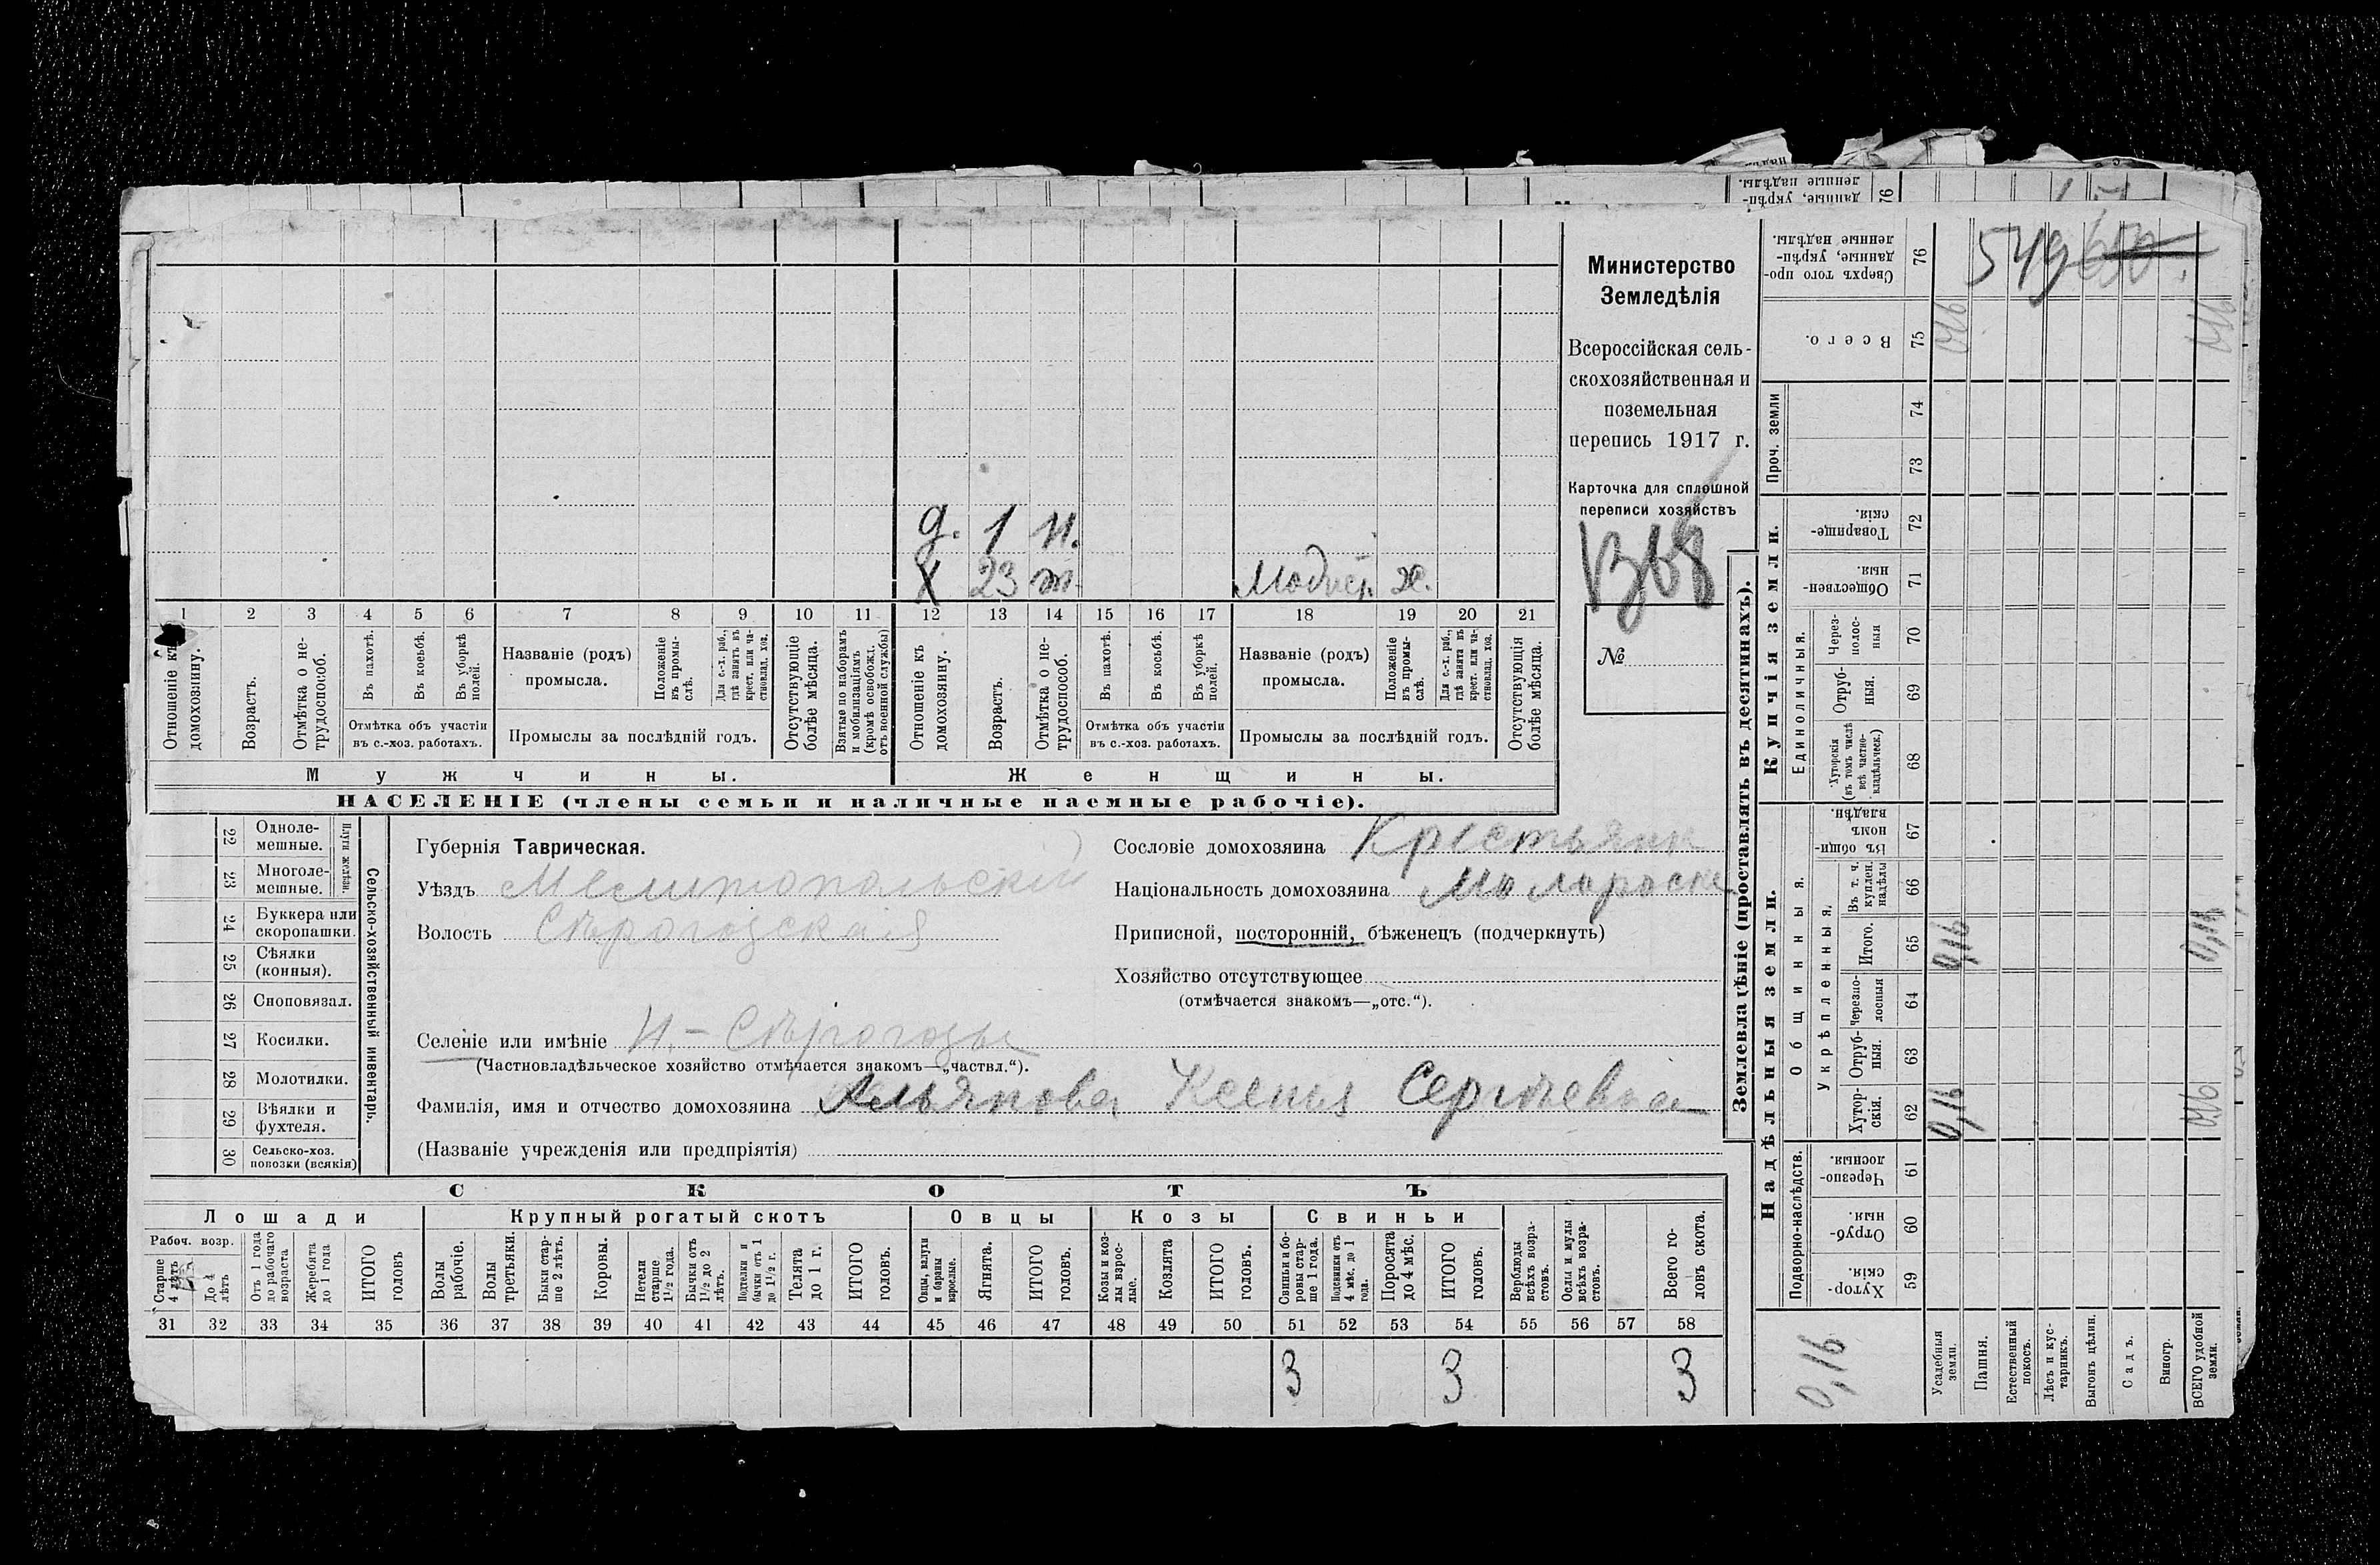 Министерство
Земледѣлія
Всероссійская сель-
скохозяйственная и
поземельная
перепись 1917 г.
Карточка для сплошной
переписи хозяйствъ
№
549 650
д. 1 н.
х 23 ж.
Модист. х.
1 2 3 4 5 6 7 8 9 10 11 12 13 14 15 16 17 18 19 20 21
Отношеніе къ домохозяину.
Возрастъ.
Отмѣтка о не-трудоспособ.
Въ пахотѣ.
Въ косьбѣ.
Въ уборкѣ полей.
Отмѣтка объ участіи
въ с.-хоз. работахъ.
Названіе (родъ)
промысла.
Положеніе въ промы-слѣ.
Для с.-х. раб., гдѣ занятъ въ крест. или ча-стновлад. хоз.
Промыслы за послѣдній годъ.
Отсутствующіе болѣе мѣсяца.
Взятые по наборамъ и мобилизаціямъ (кромѣ освобожд. отъ военной службы)
Отношеніе къ домохозяину.
Возрастъ.
Отмѣтка о не-трудоспособ.
Въ пахотѣ.
Въ косьбѣ.
Въ уборкѣ полей.
Отмѣтка объ участіи
въ с.-хоз. работахъ.
Названіе (родъ)
промысла.
Положеніе въ промы-слѣ.
Для с.-х. раб., гдѣ занята въ крест. или ча-стновлад. хоз.
Промыслы за послѣдній годъ.
Отсутствующія болѣе мѣсяца.
Мужчины.
Женщины.
НАСЕЛЕНІЕ (члены семьи и наличные наемные рабочіе).
22 Одноле-мешные.
23 Многоле-мешные.
Плуги желѣзн.
24 Буккера или скоропашки.
25 Сѣялки (конныя).
26 Сноповязал.
27 Косилки.
28 Молотилки.
29 Вѣялки и фухтеля.
30 Сельско-хоз. повозки (всякія)
Сельско-хозяйственный инвентарь.
Губернія Таврическая.
Уѣздъ Мелитопольскій
Волость Сѣрогозская
Селеніе или имѣніе Н.-Сѣрогозы
(Частновладѣльческое хозяйство отмѣчается знакомъ—„частвл.“).
Фамилія, имя и отчество домохозяина Ксенія Сергѣевна
(Названіе учрежденія или предпріятія)
Сословіе домохозяина Крестьянк
Національность домохозяина Малороск
Приписной, посторонній, бѣженецъ (подчеркнуть)
Хозяйство отсутствующее
(отмѣчается знакомъ—„отс.“).
СКОТЪ
Лошади
Рабоч. возр.
Старше 4 лѣтъ
До 4 лѣтъ
Отъ 1 года до рабочаго возраста
Жеребята до 1 года
ИТОГО головъ
Крупный рогатый скотъ
Волы рабочіе.
Волы третьяки.
Быки стар-ше 2 лѣтъ.
Коровы.
Нетели старше 1½ года.
Бычки отъ 1½ до 2 лѣтъ.
Подтелки и бычки отъ 1 до 1½ г.
Телята до 1 г.
ИТОГО головъ.
Овцы
Овцы, валухи и бараны взрослые.
Ягнята.
ИТОГО головъ.
Козы
Козы и коз-лы взрос-лые.
Козлята
ИТОГО головъ.
Свиньи
Свиньи и бо-ровы стар-ше 1 года.
Подсвинки отъ 4 мѣс. до 1 года.
Поросята до 4 мѣс.
ИТОГО головъ.
Верблюды всѣхъ возра-стовъ.
Ослы и мулы всѣхъ возра-стовъ.
Всего го-ловъ скота.
31 32 33 34 35 36 37 38 39 40 41 42 43 44 45 46 47 48 49 50 51 52 53 54 55 56 57 58
3 3 3
Землевладѣніе (проставлять въ десятинахъ).
Купчія земли.
Надѣльныя земли.
Проч. земли
Сверхъ того про-данные, укрѣп-ленные надѣлы. 76
Всего. 75
74
73
Товарище-скія. 72
Обществен-ныя. 71
Единоличныя.
Через-полос-ныя 70
Отруб-ныя. 69
Хуторскія (въ томъ числѣ всѣ частно-владѣльческ.) 68
Общинныя.
Въ общи-номъ владѣн. 67
Укрѣпленныя.
Въ т. ч. куплен. надѣлы 66
Итого. 65
Черезпо-лосныя 64
Отруб-ныя. 63
Хутор-скія. 62
Подворно-наслѣдств.
Черезпо-лосныя. 61
Отруб-ныя. 60
Хутор-скія. 59
0,16 0,16 0,16
0,16 0,16 0,16
0,16
Усадебныя земли.
Пашня.
Естественный покосъ.
Лѣсъ и кус-тарникъ.
Выгонъ цѣлин.
Садъ.
Виногр.
ВСЕГО удобной земли.